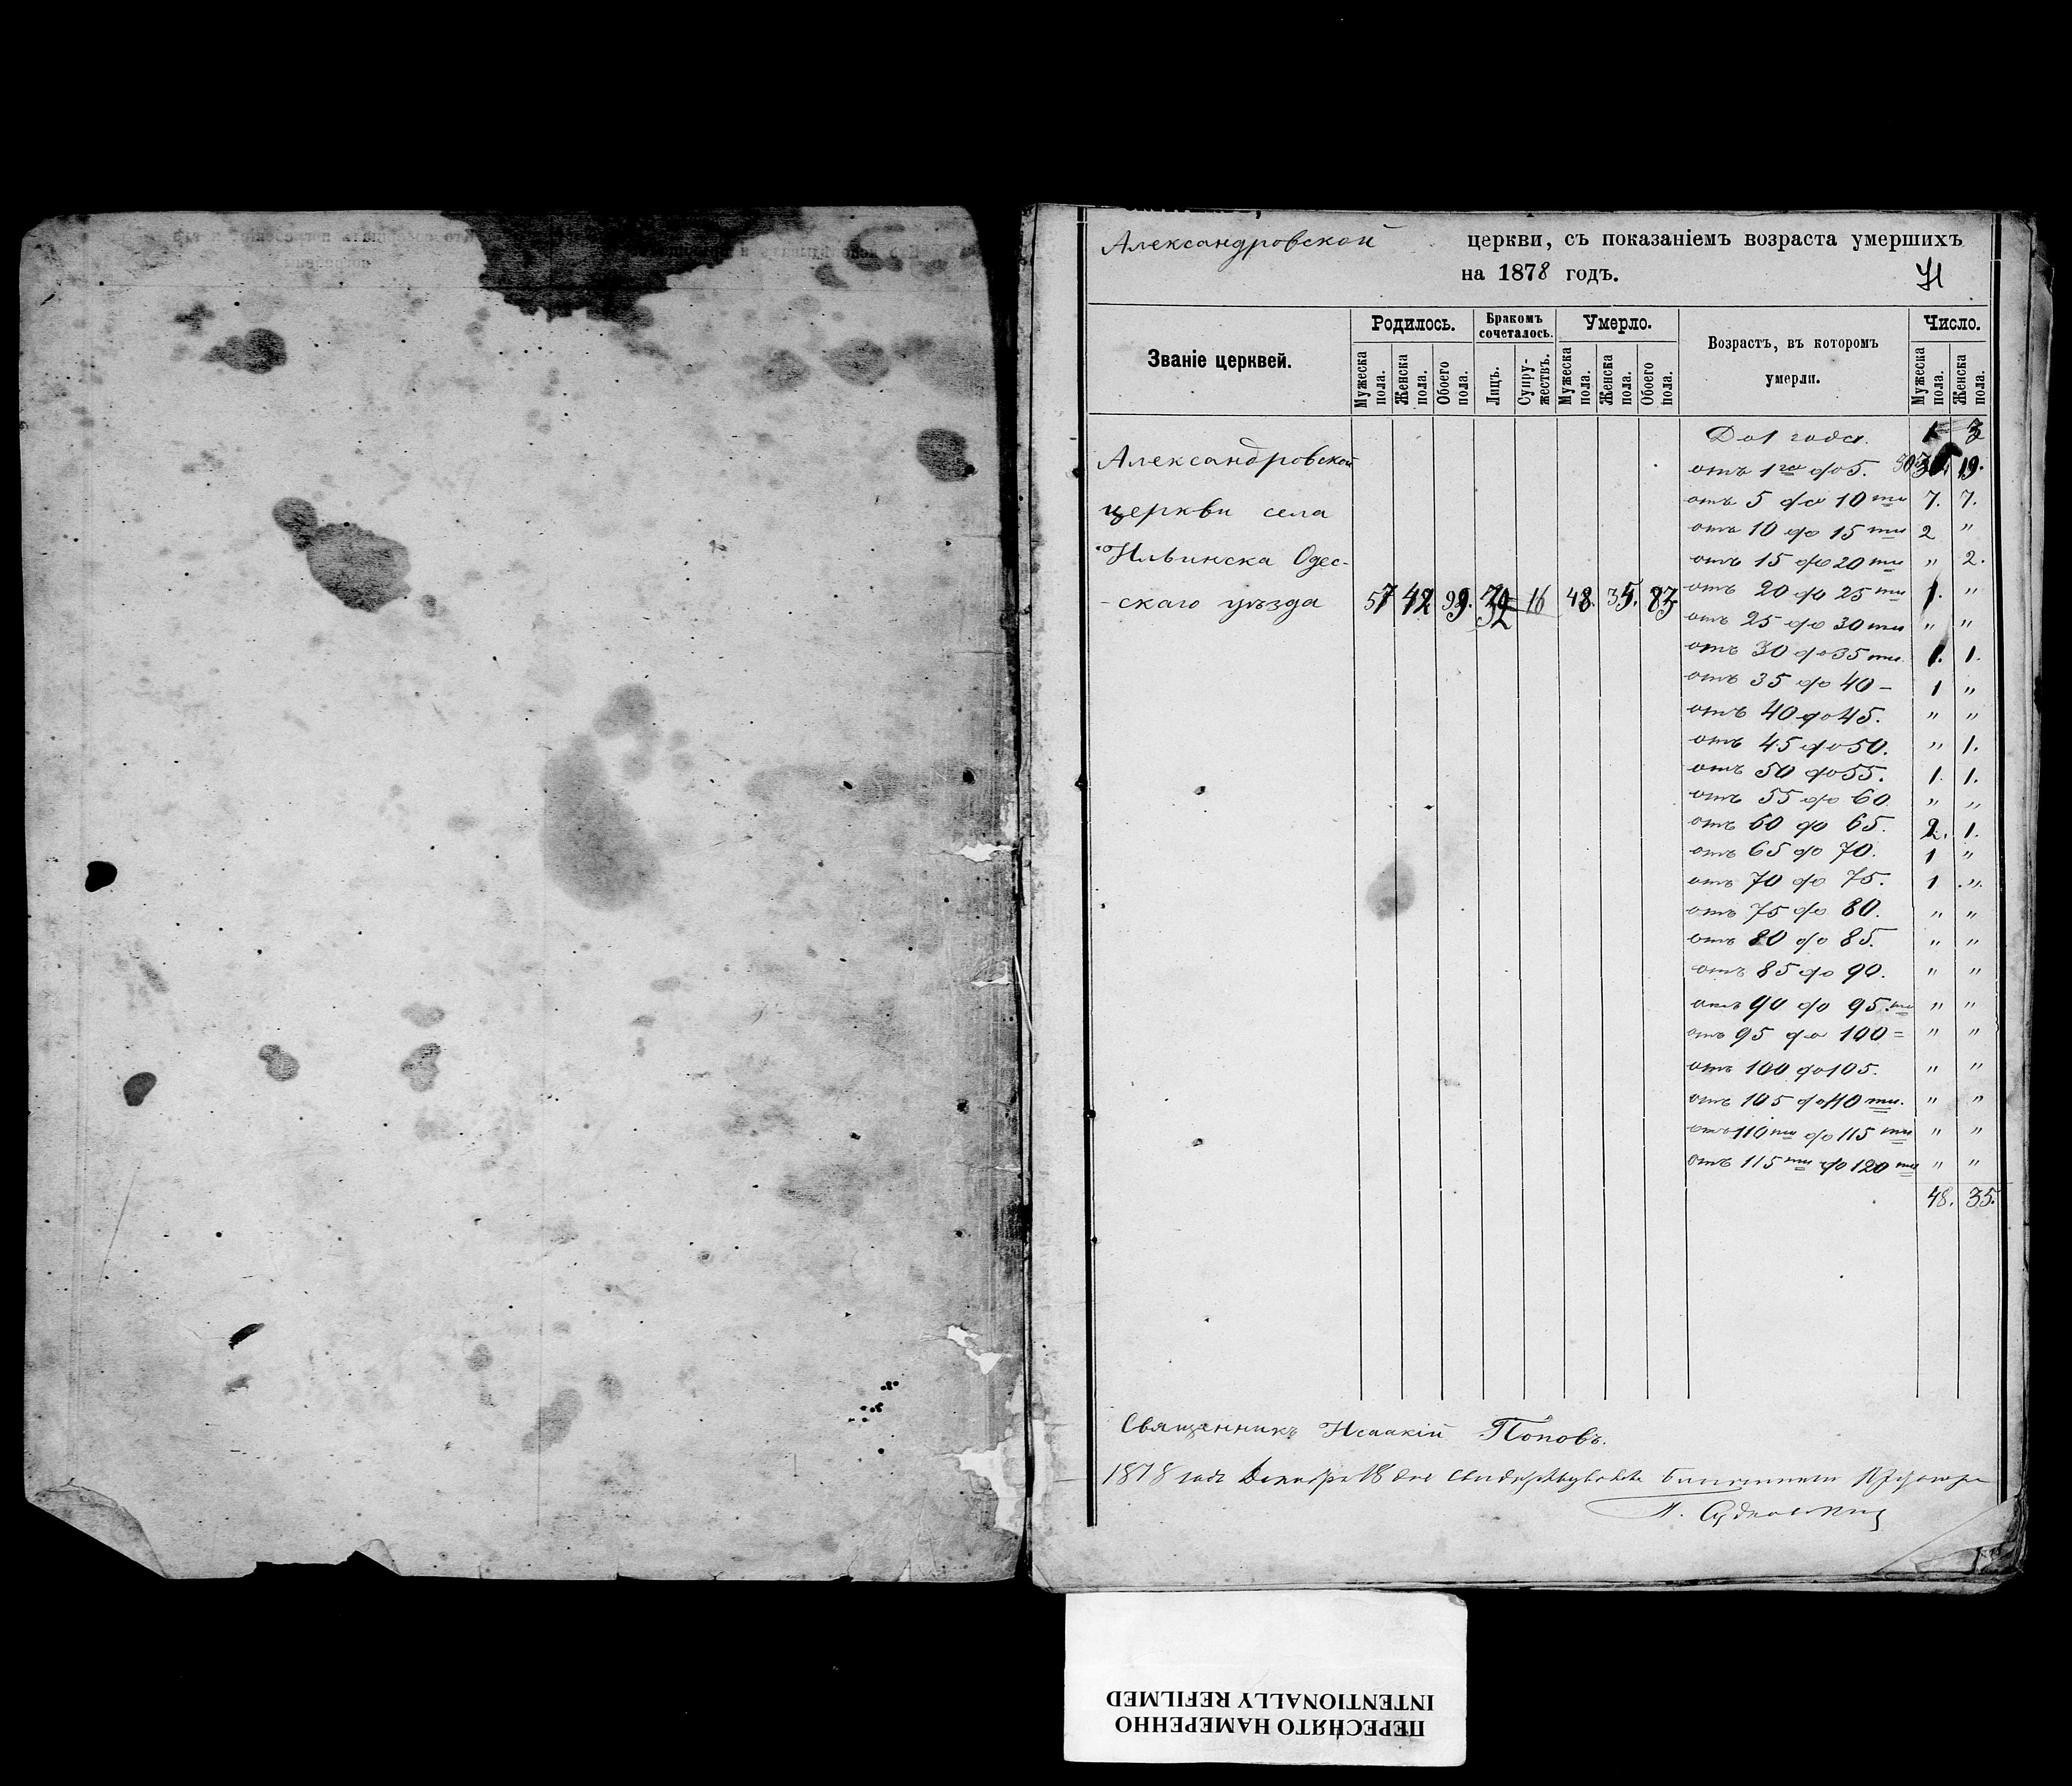 Александровской церкви, съ показаніемъ возраста умершихъ
на 1878 годъ.
71
Званіе церквей. Родилось. Бракомъ сочеталось. Умерло. Возрастъ, въ которомъ умерли. Число.
Мужеска пола. Женска пола. Обоего пола. Лицъ. Супружествъ. Мужеска пола. Женска пола. Обоего пола. Мужеска пола. Женска пола.
До 1 года. 1 3
Александровской
отъ 1го до 5. 30 19.
церкви села
отъ 5 до 10ти 7. 7.
отъ 10 до 15ти 2 "
Ильинска Одес-
отъ 15 до 20ти " 2.
-скаго уѣзда 57 42 99. 32 16 48. 35. 83.
отъ 20 до 25ти 1. "
отъ 25 до 30ти " "
отъ 30 до 35ти. 1. 1.
отъ 35 до 40- 1 "
отъ 40 до 45. " "
отъ 45 до 50. " 1.
отъ 50 до 55. 1. 1.
отъ 55 до 60 " "
отъ 60 до 65. 2. 1.
отъ 65 до 70. 1 "
отъ 70 до 75. 1 "
отъ 75 до 80. " "
отъ 80 до 85. " "
отъ 85 до 90. " "
отъ 90 до 95.ти " "
отъ 95 до 100= " "
отъ 100 до 105. " "
отъ 105 до 110ти. " "
отъ 110ти до 115ти " "
отъ 115ти до 120ти " "
48. 35.
Священникъ Исаакій Поповъ.
1878 года Декабря 18 дня свидѣтельствовалъ Благочинный Протоіерей
ПЕРЕСНЯТО НАМЕРЕННО
INTENTIONALLY REFILMED